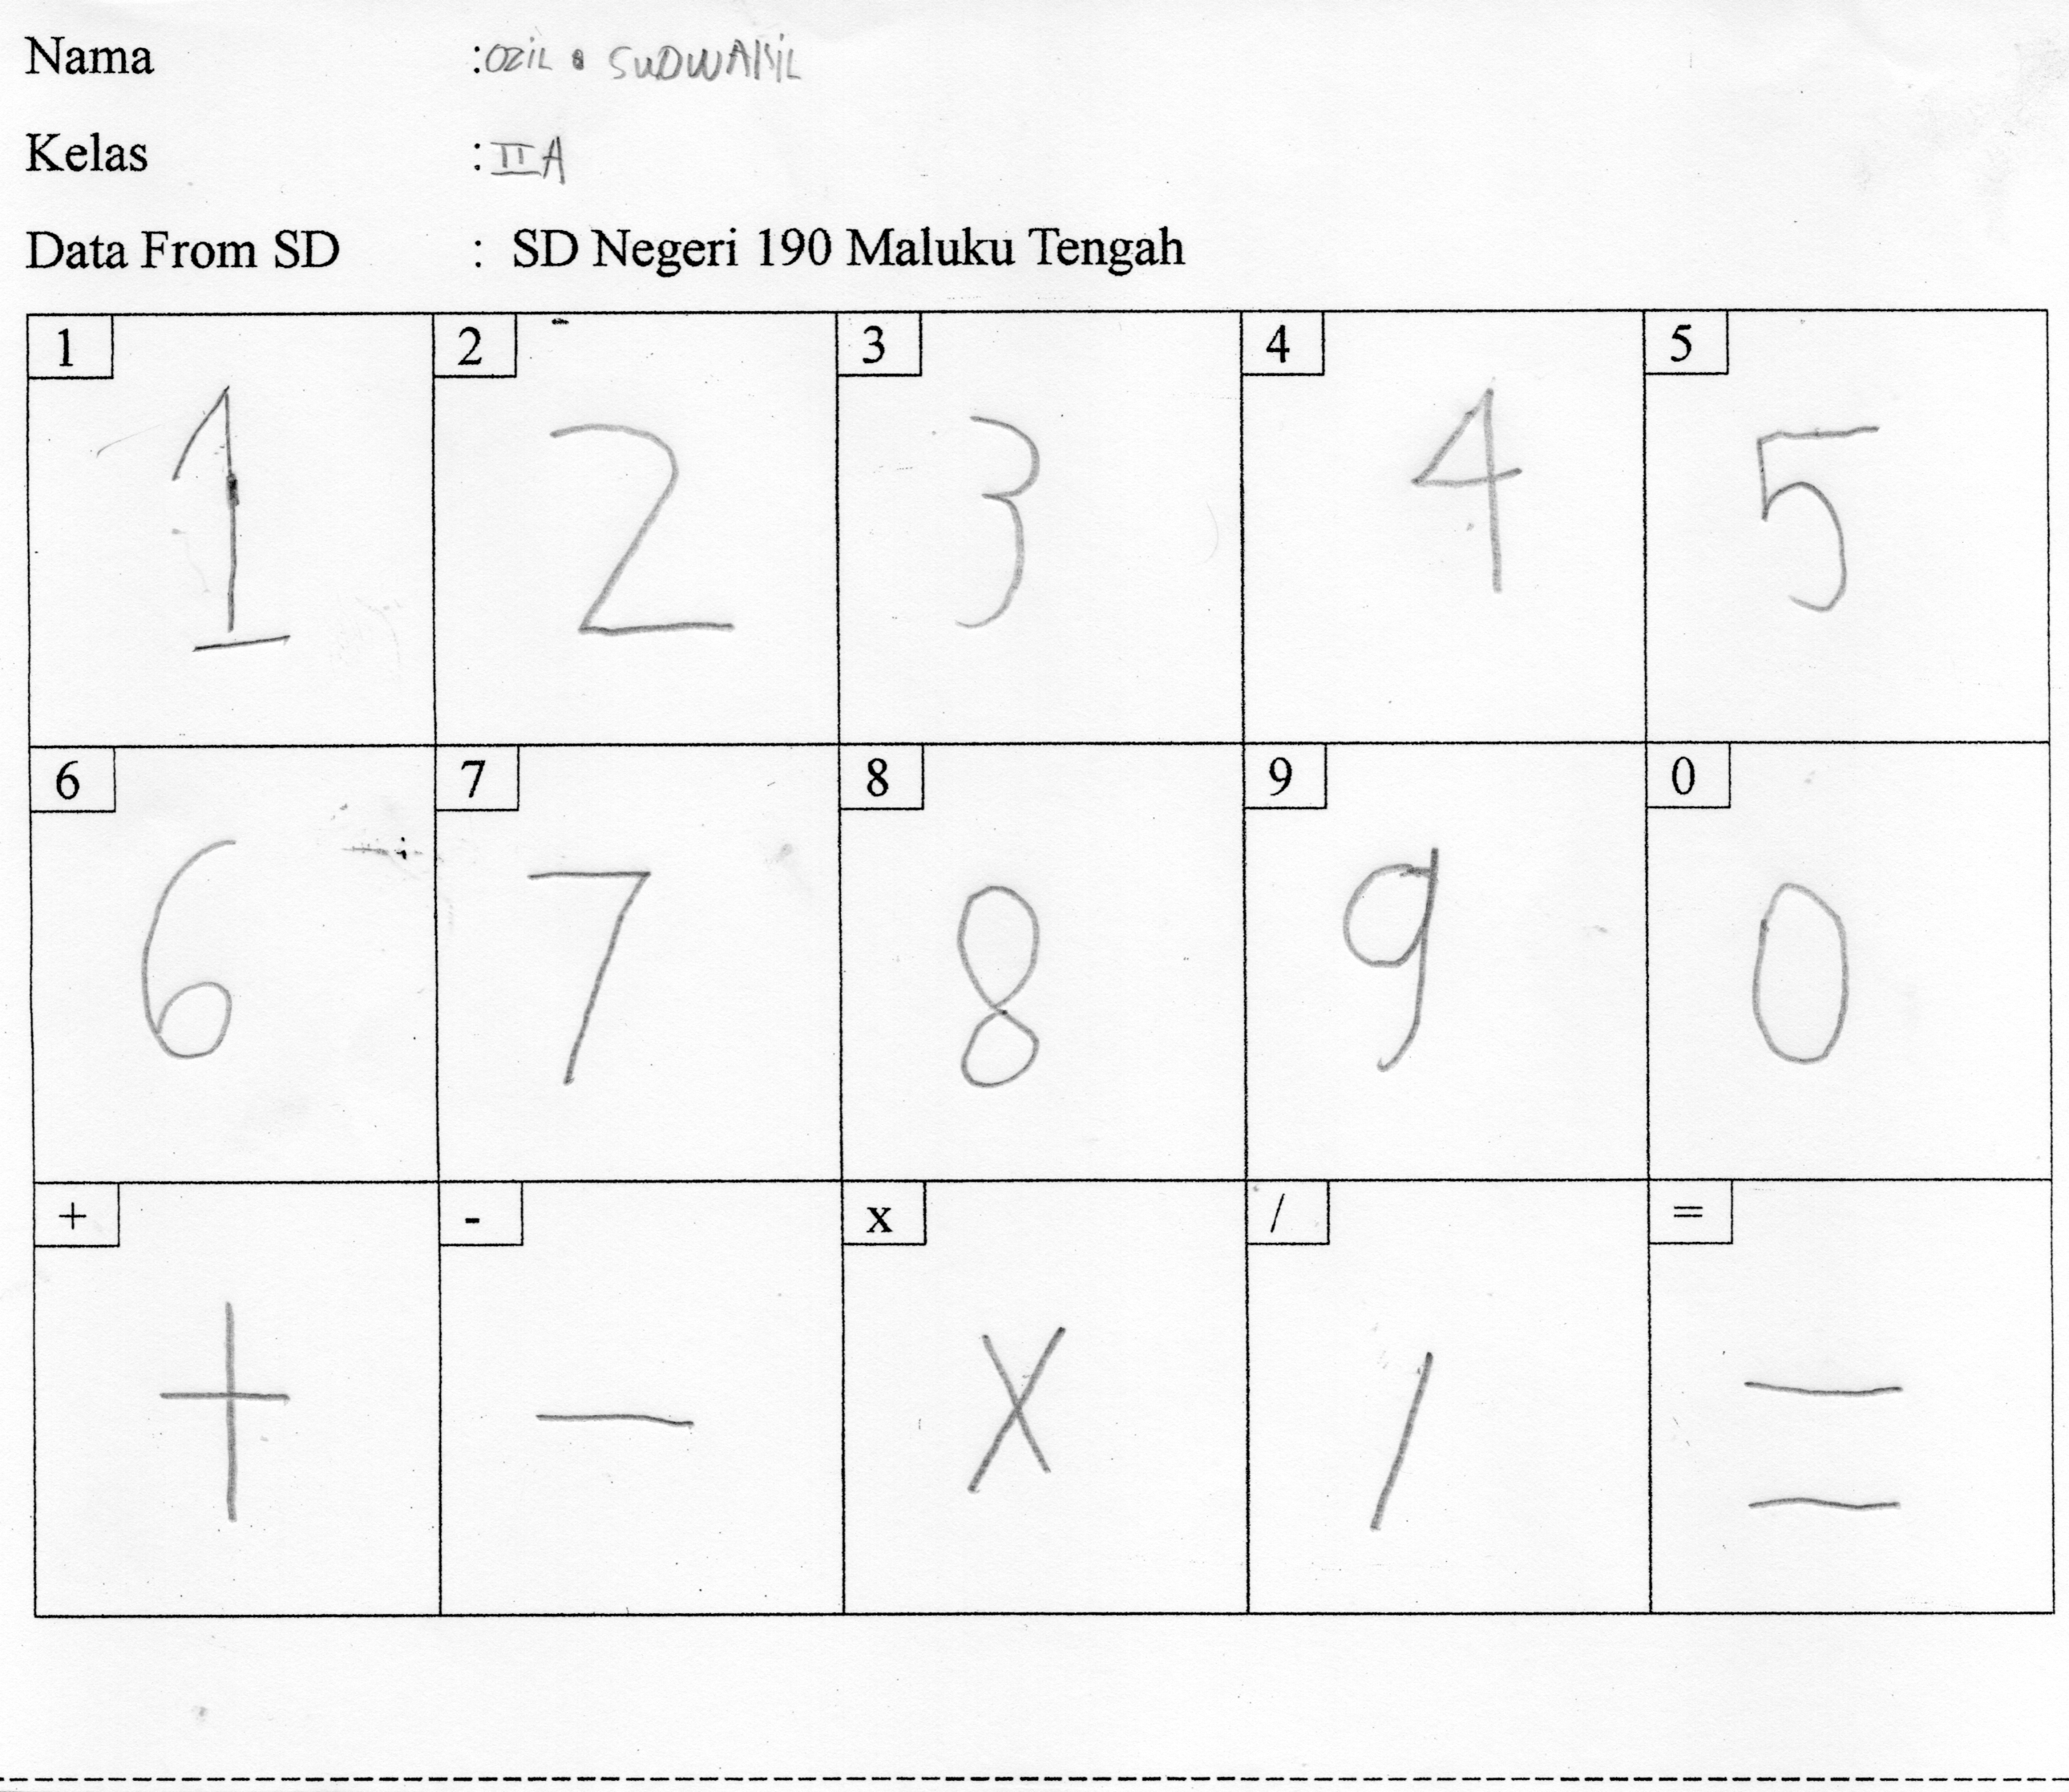 Nama : OZiL . SUDWAKiL
Kelas : II A
Data From SD : SD Negeri 190 Maluku Tengah
1 2 3 4 5
1 2 3 4 5
6 7 8 9 0
6 7 8 9 0
+ - x / =
+ - x / =